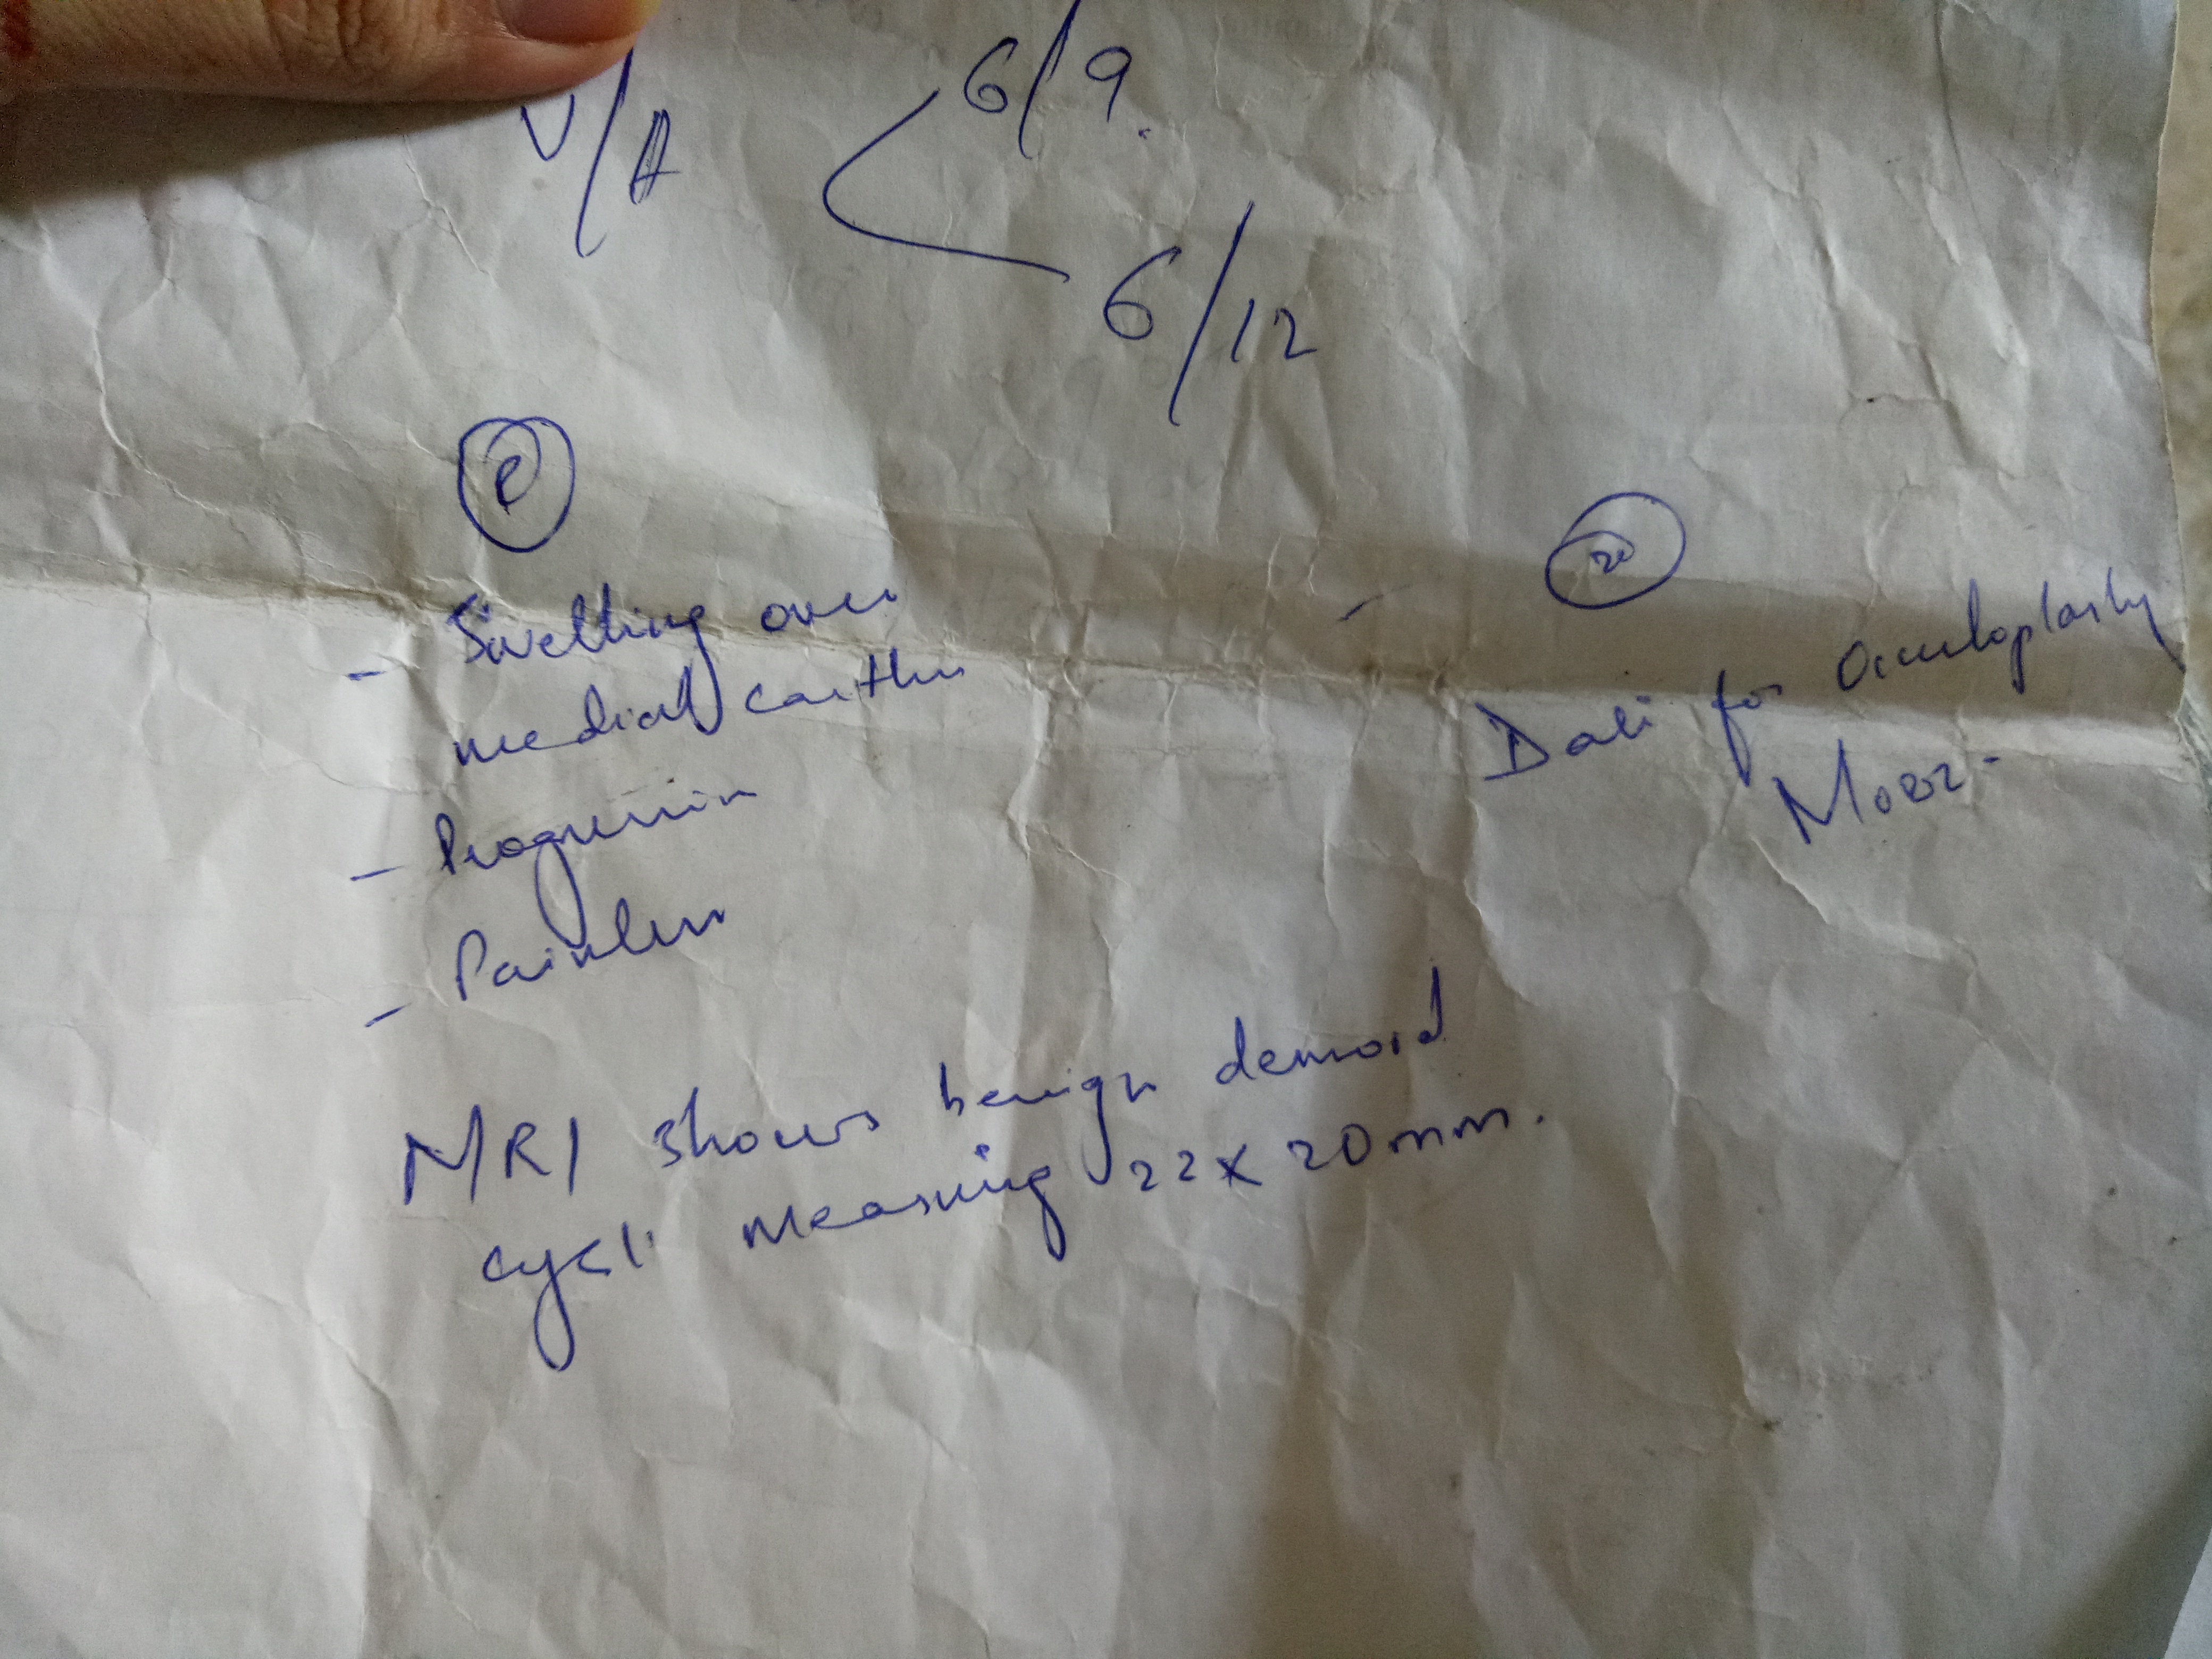 V/A
6/9.
6/12
- Swelling over
medial canthus
- Progressive
- Painless
Date for Oculoplasty
MRI shows benign dermoid
cyst measuring 22 x 20mm.